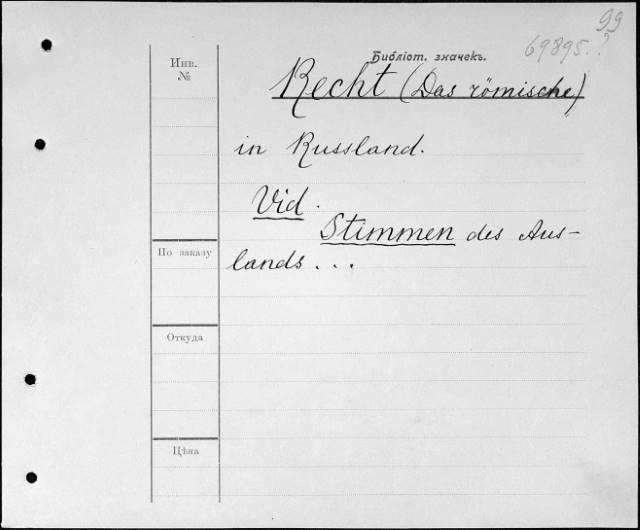 99
69895.?
Библіот. значекъ.
Инв.
№
Recht (Das römische)
in Russland.
Vid.
Stimmen des Aus-
lands...
По заказу
Откуда
Цѣна